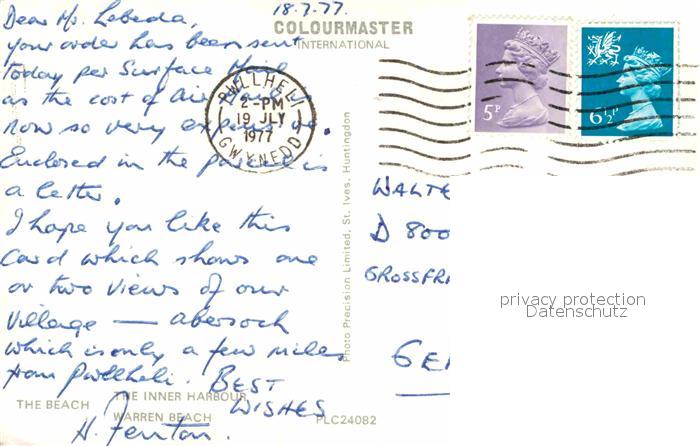 18.7.77.
Dear Mr. Lebeda,
your order has been sent
today per Surface Mail
as the cost of Air Mail is
now so very expensive.
Enclosed in the parcel is
a letter.
I hope you like this
Card which shows one
or two views of our
village — abersoch
which is only a few miles
from Pwllheli. BEST
WISHES
H. Fenton.
COLOURMASTER
INTERNATIONAL
PWLLHELI
2-PM
19 JLY
1977
GWYNEDD
5P
6½P
Photo Precision Limited, St. Ives, Huntingdon
WALTE
D 800
GROSSFRA
GE
privacy protection
Datenschutz
THE BEACH
THE INNER HARBOUR
WARREN BEACH
PLC24082